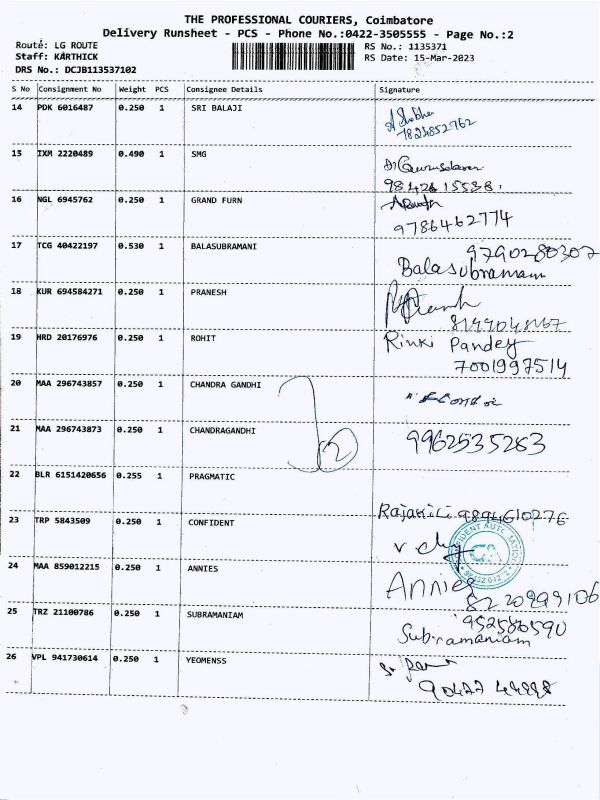 THE PROFESSIONAL COURIERS, Coimbatore
Delivery Runsheet - PCS - Phone No.:0422-3505555 - Page No.:2
Route: LG ROUTE RS No.: 1135371
Staff: KARTHICK RS Date: 15-Mar-2023
DRS No.: DCJB113537102
S No Consignment No Weight PCS Consignee Details Signature
14 PDK 6016487 0.250 1 SRI BALAJI
7824852762
15 IXM 2220489 0.490 1 SMG
98426 15538.
16 NGL 6945762 0.250 1 GRAND FURN
9786462774
17 TCG 40422197 0.530 1 BALASUBRAMANI 9790280307
Balasubramani
18 KUR 694584271 0.250 1 PRANESH
19 HRD 20176976 0.250 1 ROHIT Rinki Pandey
7001997514
20 MAA 296743857 0.250 1 CHANDRA GANDHI
21 MAA 296743873 0.250 1 CHANDRAGANDHI 9962535283
2
22 BLR 6151420656 0.255 1 PRAGMATIC
9894610276
23 TRP 5843509 0.250 1 CONFIDENT
24 MAA 859012215 0.250 1 ANNIES Annies
8220999106
25 TRZ 21100786 0.250 1 SUBRAMANIAM 952586590
Subramaniam
26 VPL 941730614 0.250 1 YEOMENSS